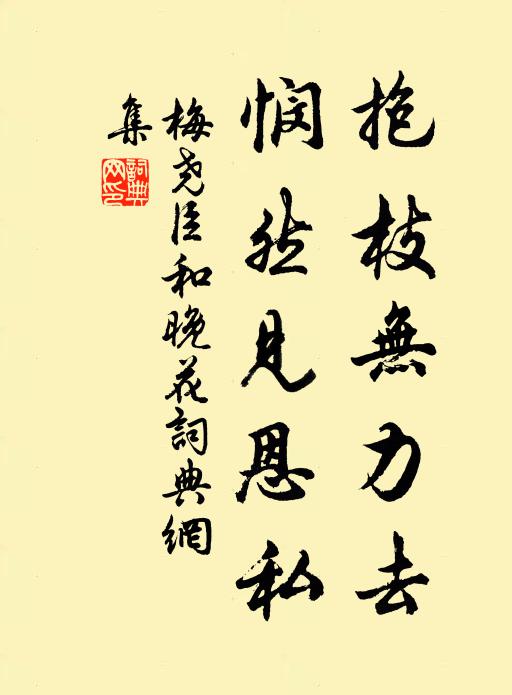 抱枝無力去
憫然見恩私
梅尧臣和晚花詞典網
集
詞典
网印